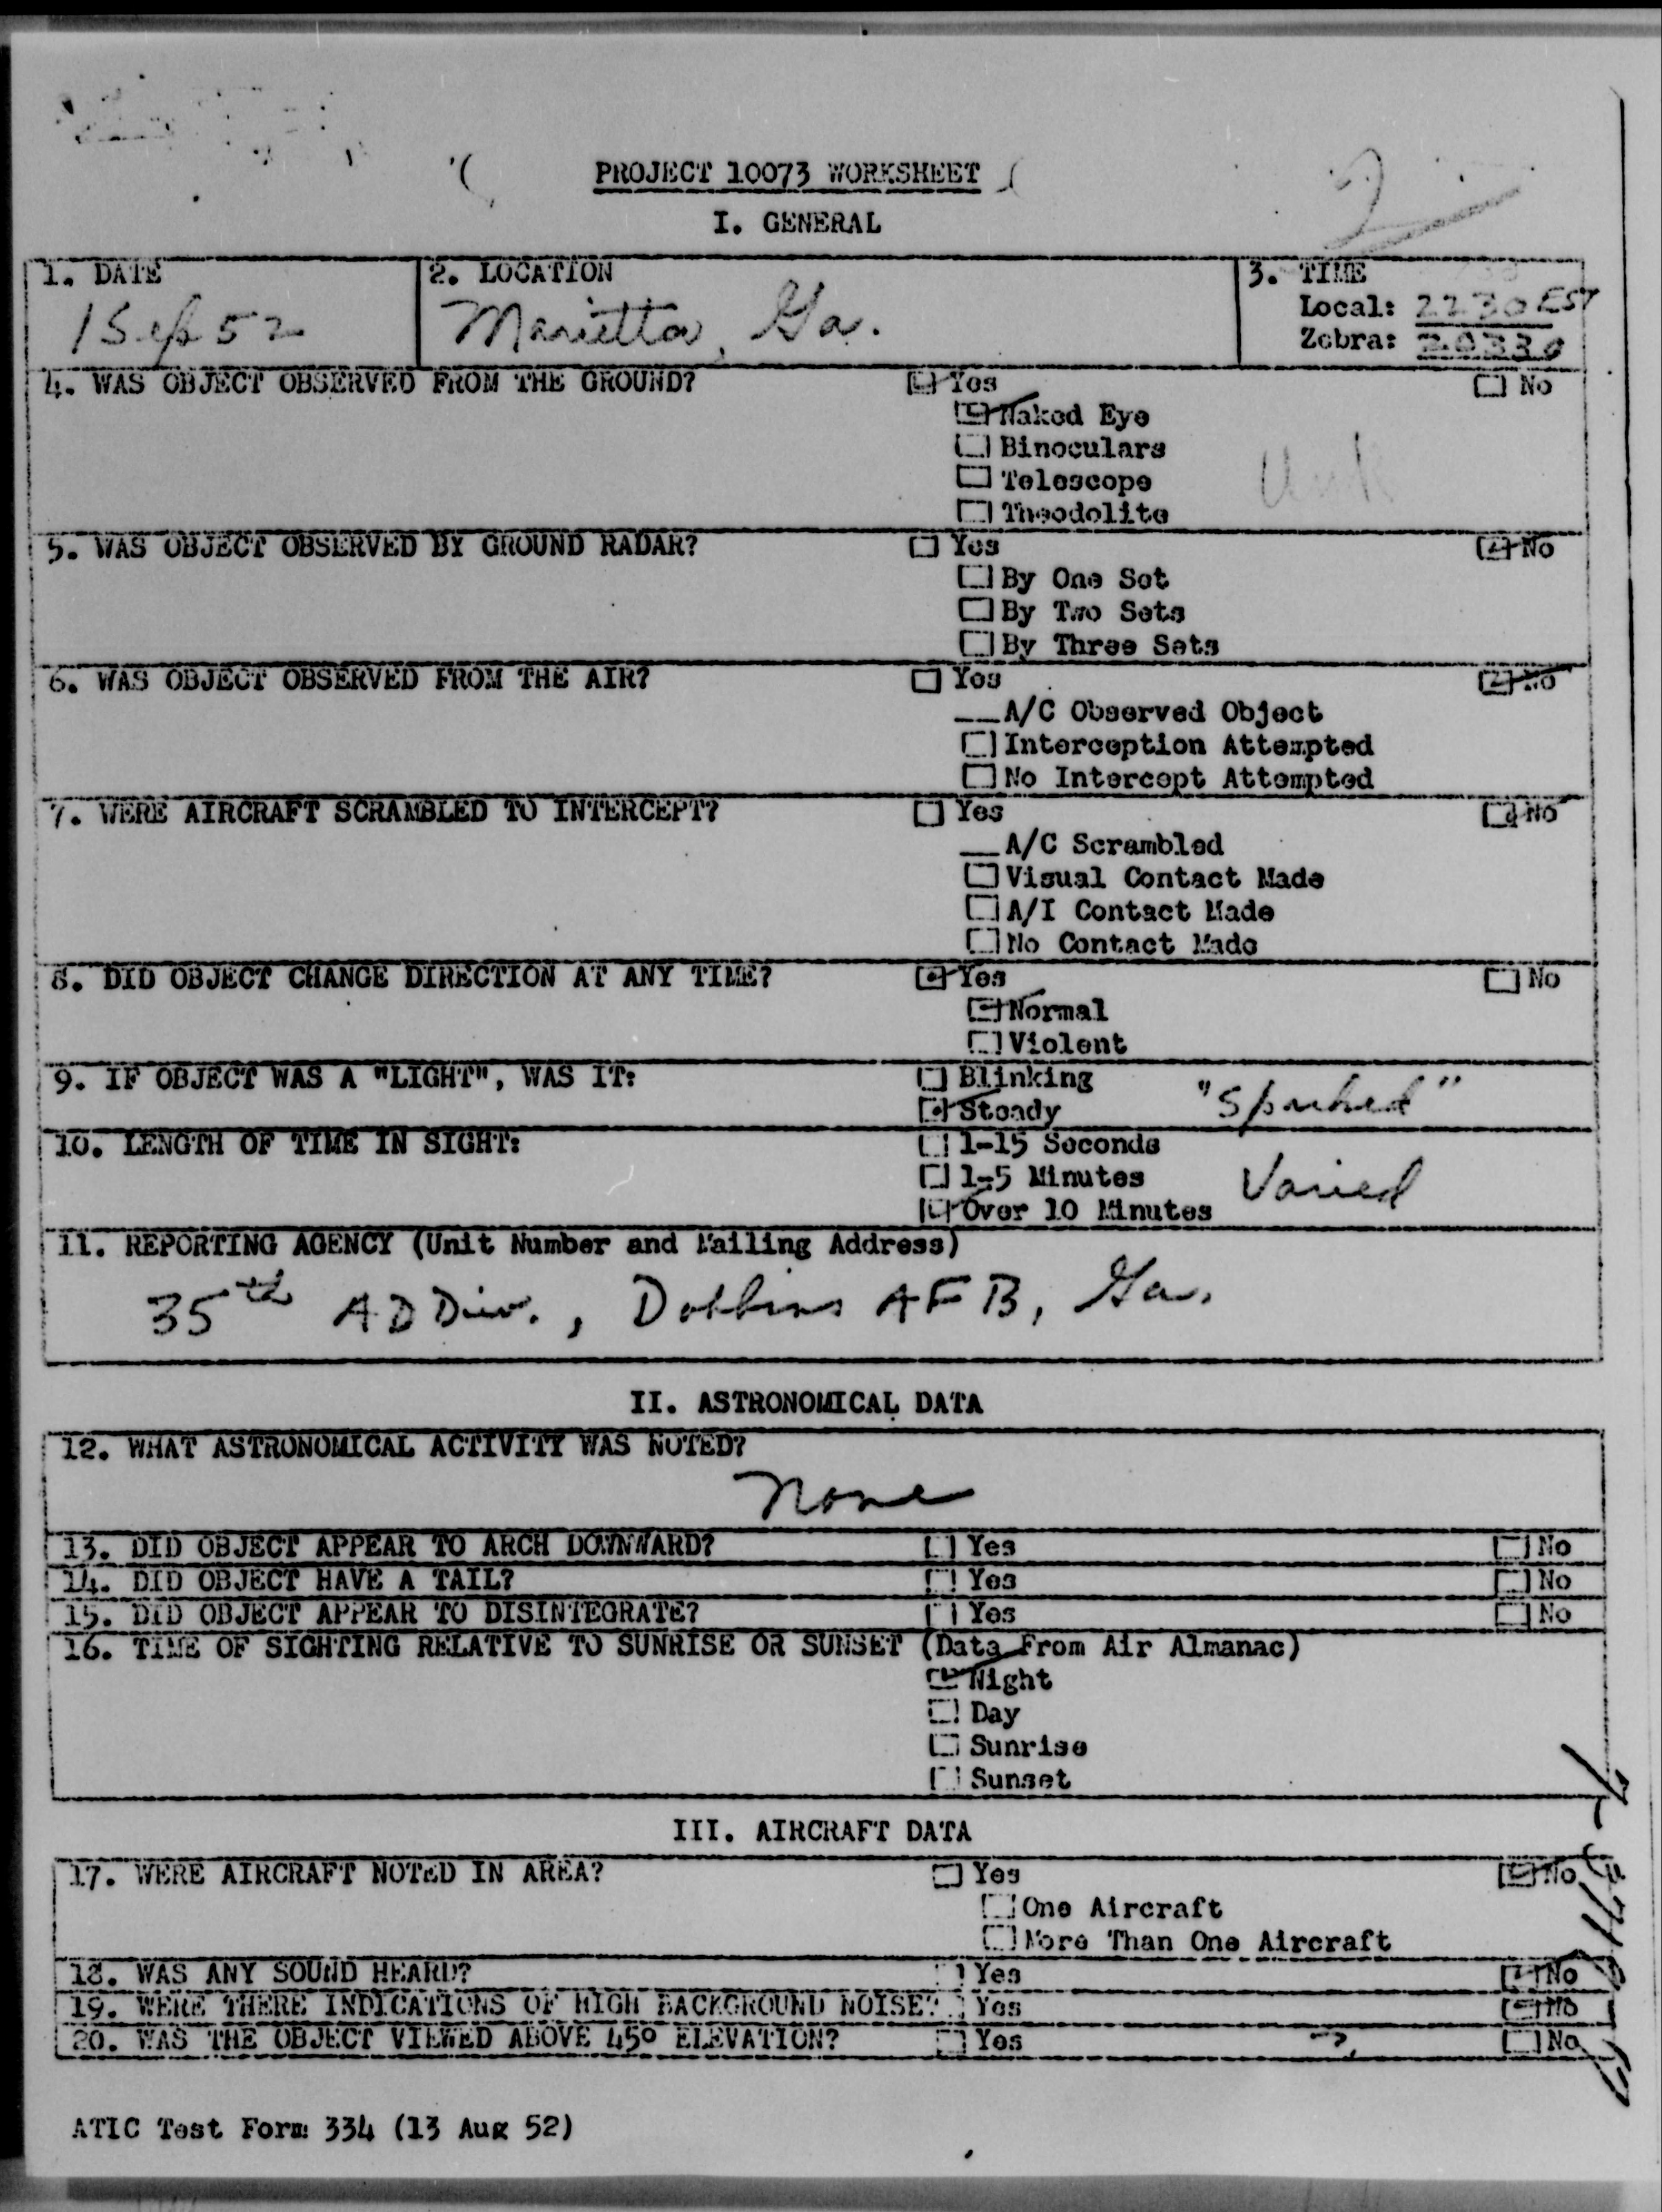 PROJECT 10073 WORKSHEET
2
I. GENERAL
1. DATE
1 Sep 52
2. LOCATION
Marietta, Ga.
3. TIME
Local: 2230 EST
Zebra: 20330
4. WAS OBJECT OBSERVED FROM THE GROUND? Yes No
Naked Eye
Binoculars
Telescope
Unk
Theodolite
5. WAS OBJECT OBSERVED BY GROUND RADAR? Yes No
By One Set
By Two Sets
By Three Sets
6. WAS OBJECT OBSERVED FROM THE AIR? Yes No
__A/C Observed Object
Interception Attempted
No Intercept Attempted
7. WERE AIRCRAFT SCRAMBLED TO INTERCEPT? Yes No
__A/C Scrambled
Visual Contact Made
A/I Contact Made
No Contact Made
8. DID OBJECT CHANGE DIRECTION AT ANY TIME? Yes No
Normal
Violent
9. IF OBJECT WAS A "LIGHT", WAS IT: Blinking
Steady "Sparked"
10. LENGTH OF TIME IN SIGHT: 1-15 Seconds
1-5 Minutes Varied
Over 10 Minutes
11. REPORTING AGENCY (Unit Number and Mailing Address)
35th AD Div., Dobbins AFB, Ga.
II. ASTRONOMICAL DATA
12. WHAT ASTRONOMICAL ACTIVITY WAS NOTED?
None
13. DID OBJECT APPEAR TO ARCH DOWNWARD? Yes No
14. DID OBJECT HAVE A TAIL? Yes No
15. DID OBJECT APPEAR TO DISINTEGRATE? Yes No
16. TIME OF SIGHTING RELATIVE TO SUNRISE OR SUNSET (Data From Air Almanac)
Night
Day
Sunrise
Sunset
III. AIRCRAFT DATA
17. WERE AIRCRAFT NOTED IN AREA? Yes No
One Aircraft
More Than One Aircraft
18. WAS ANY SOUND HEARD? Yes No
19. WERE THERE INDICATIONS OF HIGH BACKGROUND NOISE? Yes No
20. WAS THE OBJECT VIEWED ABOVE 45° ELEVATION? Yes ? No
ATIC Test Form 334 (13 Aug 52)